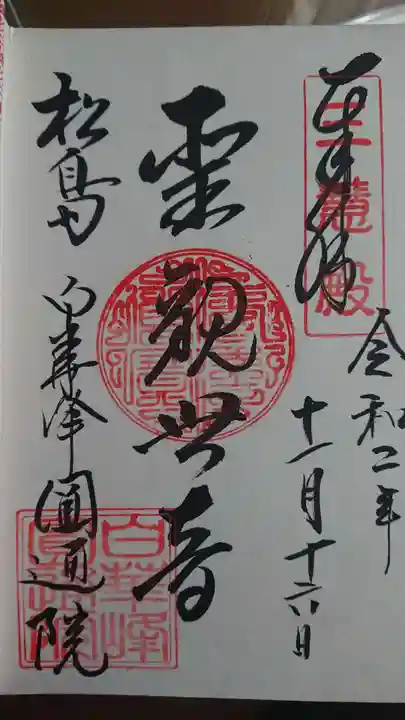 奉拝
三慧殿
令和二年
十一月十六日
聖觀世音
松島
白華峰圓通院
白華峰